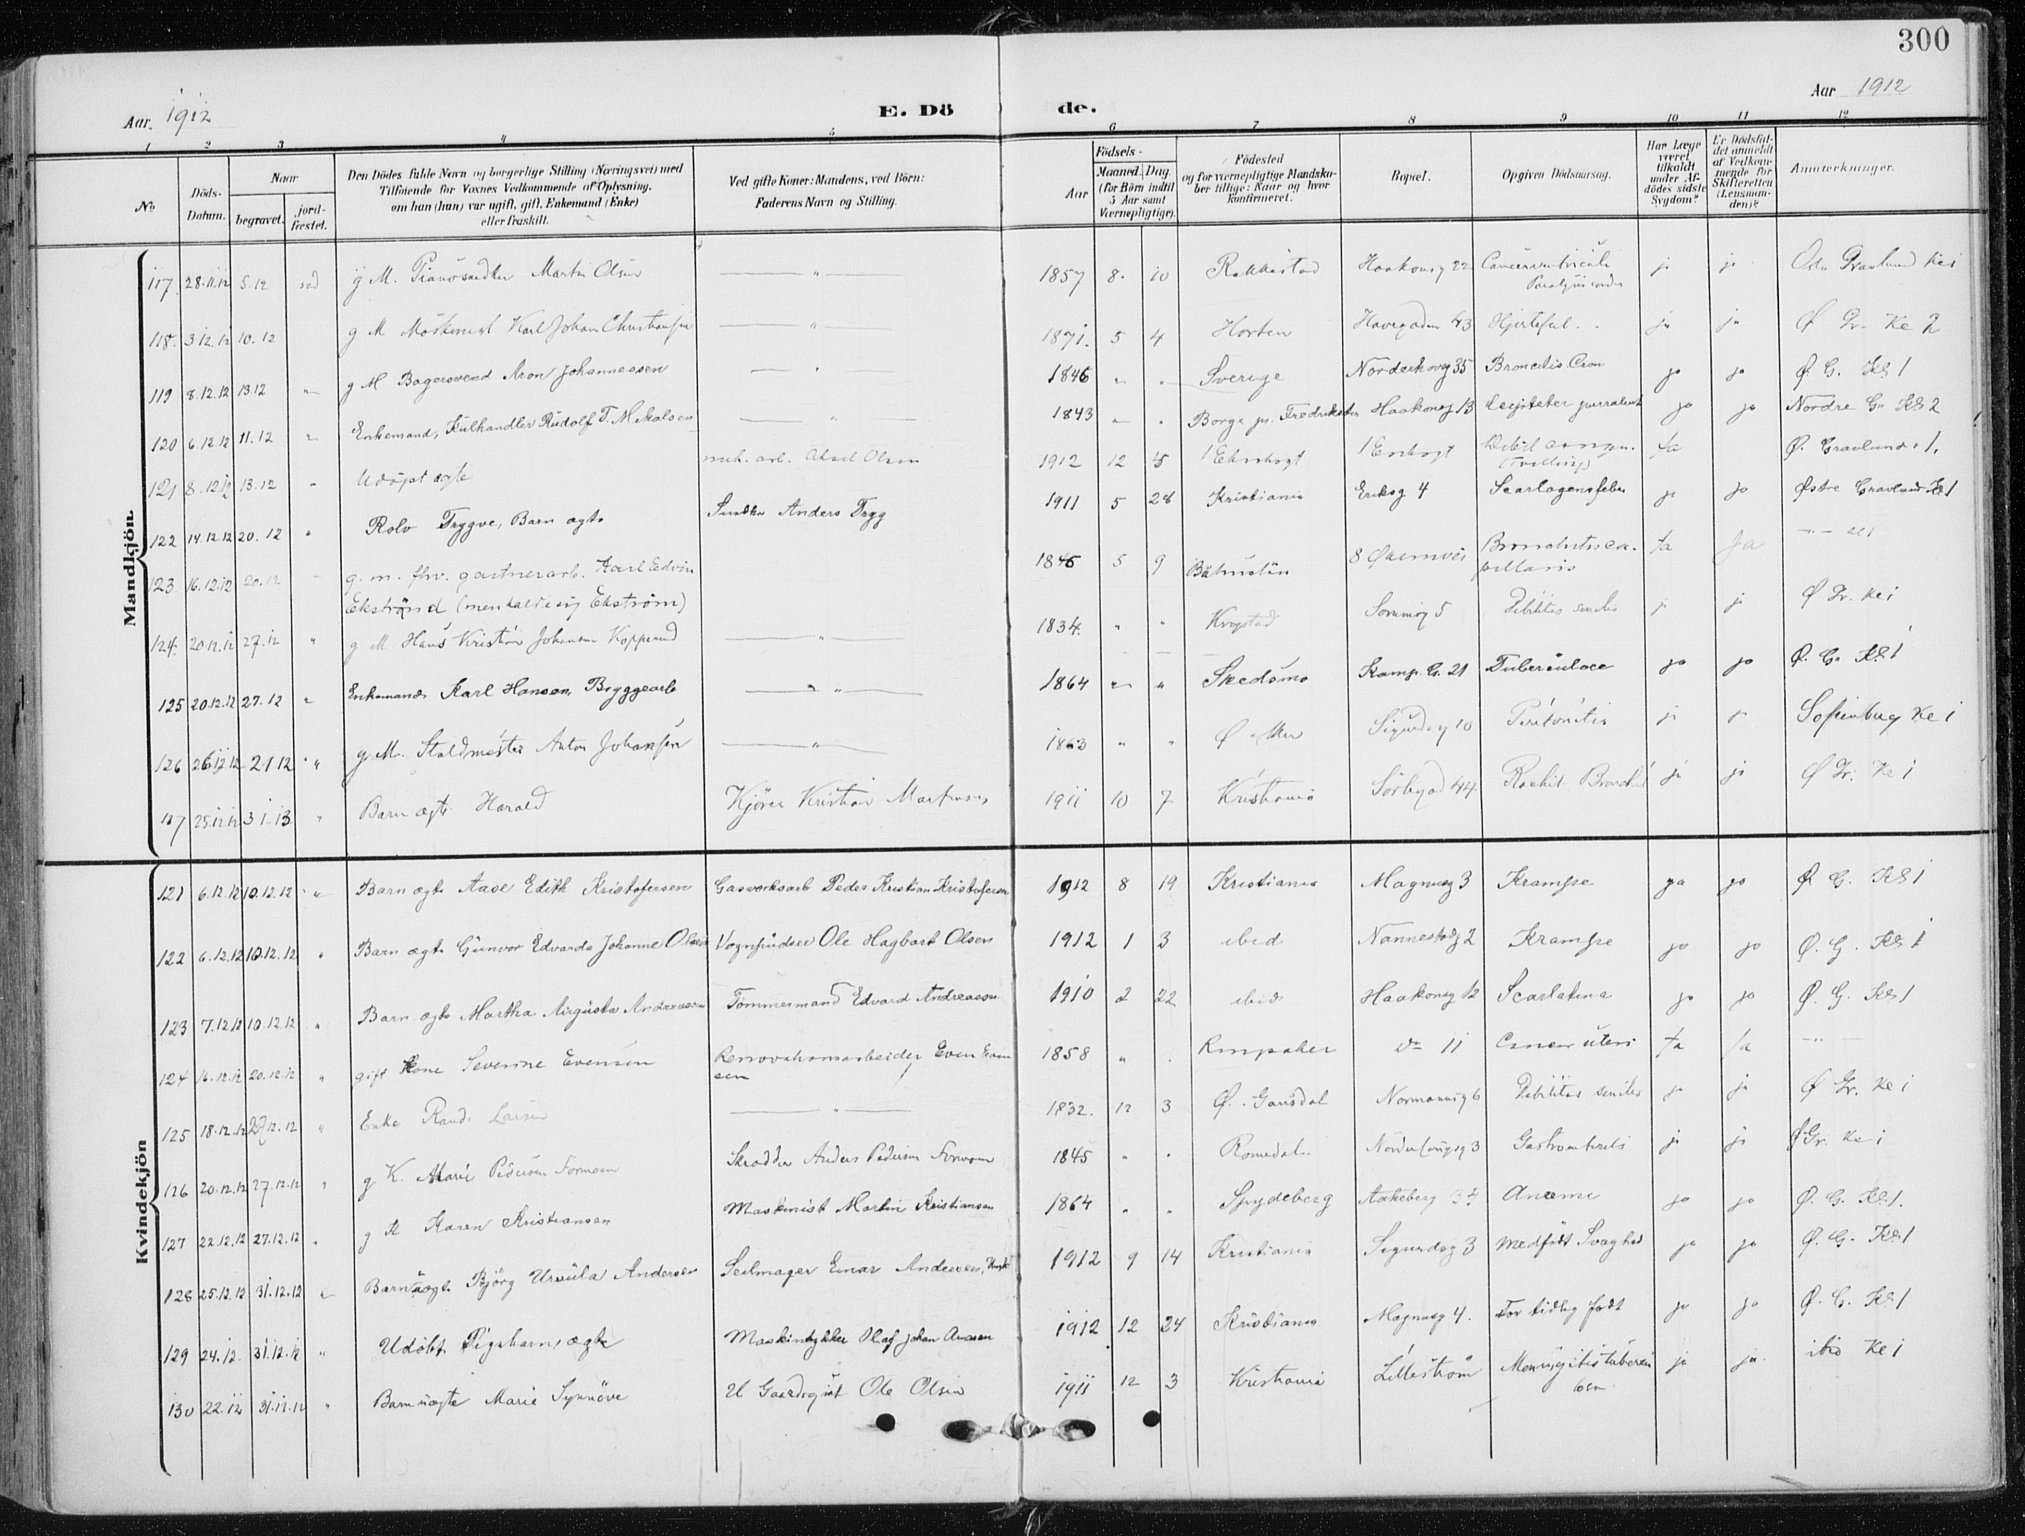 300
Aar. 1912
E. Dö de.
Aar 1912
1 2 3 4 5 6 7 8 9 10 11 12
No
Döds-Datum.
Naar
begravet.
jord-fæstet.
Den Dödes fulde Navn og borgerlige Stilling (Næringsvei) med
Tilföiende for Voxnes Vedkommende af Oplysning,
om han (hun) var ugift, gift, Enkemand (Enke)
eller fraskilt.
Ved gifte Koner: Mandens, ved Börn:
Faderens Navn og Stilling.
Födsels-
Aar
Maaned. Dag.
(for Börn indtil
5 Aar samt
Værnepligtige).
Födested
og for værnepligtige Mandska-
ber tillige: Naar og hvor
konfirmeret.
Bopæl.
Opgiven Dödsaarsag.
Har Læge
været
tilkaldt
under Af-
dödes sidste
Sygdom?
Er Dödsfal-
det anmeldt
af Vedkom-
mende for
Skifteretten
(Lensman-
den)?
Anmerkninger.
Mandkjön.
117 28.11.12 5.12 g M. Martin Olsen — " — 1857 8. 10 Rakkestad Haakonsg 22 ja ja
118. 3.12.12 10.12 g M Maskinist Karl Johan Christiansen — " — 1871. 5 4 Horten Havegaden 43 Hjertefeil. ja ja Ø Gr. Kl 2
119 8.12.12 13.12 " g M Bagersvend Aron Johannessen — " — 1846 " " Sverige Norderhovg 35 Broncitis Cron ja ja Ø. G. Kl 1
120 6.12.12 11.12 " Enkemand, Kulhandler Rudolf T. Mikalsen — " — 1843 " " Borge pr. Fredrikstad Haakonsg 13 ja ja Nordre G. Kl 2
121 8.12.12 13.12 " Udöpt ægte mek. arb. Aksel Olsen 1912 12 1 Ja Ø. Gravlund. 1.
122 14.12.12 20.12 " Rolv Tryggve, Barn ægte Anders Tryg 1911 5 28 Kristiania Eriksg 4 Scarlagensfeber ja ja Østre Gravlund Kl 1
123 16.12.12 20.12 " g. m. fhv. gartnerarb. Karl Edvin
Ekstrand (men kaldte sig Ekström) 1845 5 9 Båhuslän 8 Bronchitis ca-
pillaris Ja Ja
124. 20.12.12 27.12 " g M Hans Kristian Johansen — " — 1834. " " Sormsg 5 Debilitas senilis ja ja Ø Gr. Kl 1
125 20.12.12 27.12 " Enkemand Karl Hansen, Bryggearb — " — 1864 " " Skedsmo Kamp. G. 21 Tuberculose ja ja Ø. G. Kl 1
126 26.12.12 2.1.12 " g. M. Staldmester Anton Johansen — " — 1863 " " Ø Aker Sigurdsg 10 Peritonitis ja ja Sofienberg Kl 1
127 25.12.12 3.1.13 " Barn ægte Harald Kjörer Kristian Martinsen 1911 10 7 Kristiania Sörligad 44 ja ja Ø Gr. Kl 1
Kvindekjön
121 6.12.12 10.12.12 " Barn ægte Aase Edith Kristofersen Gasverksarb Peder Kristian Kristofersen 1912 8 19 Kristiania Magnusg 3 Krampe ja ja Ø. G. Kl 1
122 6.12.12 10.12.12 " Barn ægte Gunvor Edvarda Johanne Olsen Vognpudser Ole Hagbart Olsen 1912 1 3 ibid Nannestadg 2 Krampe ja ja Ø. G. Kl 1
123 7.12.12 10.12.12 " Barn ægte Martha Augusta Andreassen Tömmermand Edvard Andreassen 1910 2 22 ibid Haakonsg 12 Scarlatina ja ja Ø. G. Kl 1
124 16.12.12 20.12.12 " gift Kone Severine Evensen Renovationsarbeider Even Even
sen 1858 " . Ringsaker do 11 Cancer uteri Ja Ja — " —
125 18.12.12 27.12.12 " Enke Randi Larsen — " — 1832. 12 3 Ø. Gausdal Normannsg 6 Debilitas senilis ja ja Ø Gr. Kl 1
126 20.12.12 27.12.12 " g K. Marie Pedersen Skrædder Anders Pedersen 1845 " " Romedal 3 ja ja Ø Gr. Kl 1
127 22.12.12 27.12.12 " g K Karen Kristiansen Maskinist Martin Kristiansen 1864 " " Spydeberg Aakeberg Anæmi ja ja Ø. G. Kl 1.
128 25.12.12 31.12.12 " Barn uægte Björg Ursula Andersen Seilmager Einar Andersen, 1912 9 14 Kristiania Sigurdsg 3 Medfödt Svaghed ja ja Ø. G. Kl 1
129 24.12. 31.12.12 " Udöbt Pigebarn, ægte Olaf Johan 1912 12 24 Kristiania Magnusg 4. For tidlig födt ja ja Ø. G. Kl 1
130 22.12 31.12.12 " Barn uægte Marie Synnöve U Ole Olsen 1911 12 3 Kristiania Lilleström ja ja. ibid Kl 1